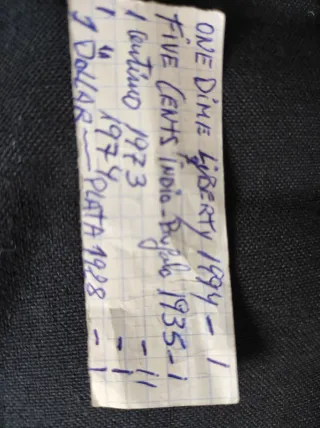 ONE DIME LIBERTY 1994 - 1
FIVE CENTS INDIO - Bufalo 1935 - 1
1 Centimo 1973 - 11
1 " 1974 - 1
1 DOLLAR - PLATA 1928 - 1